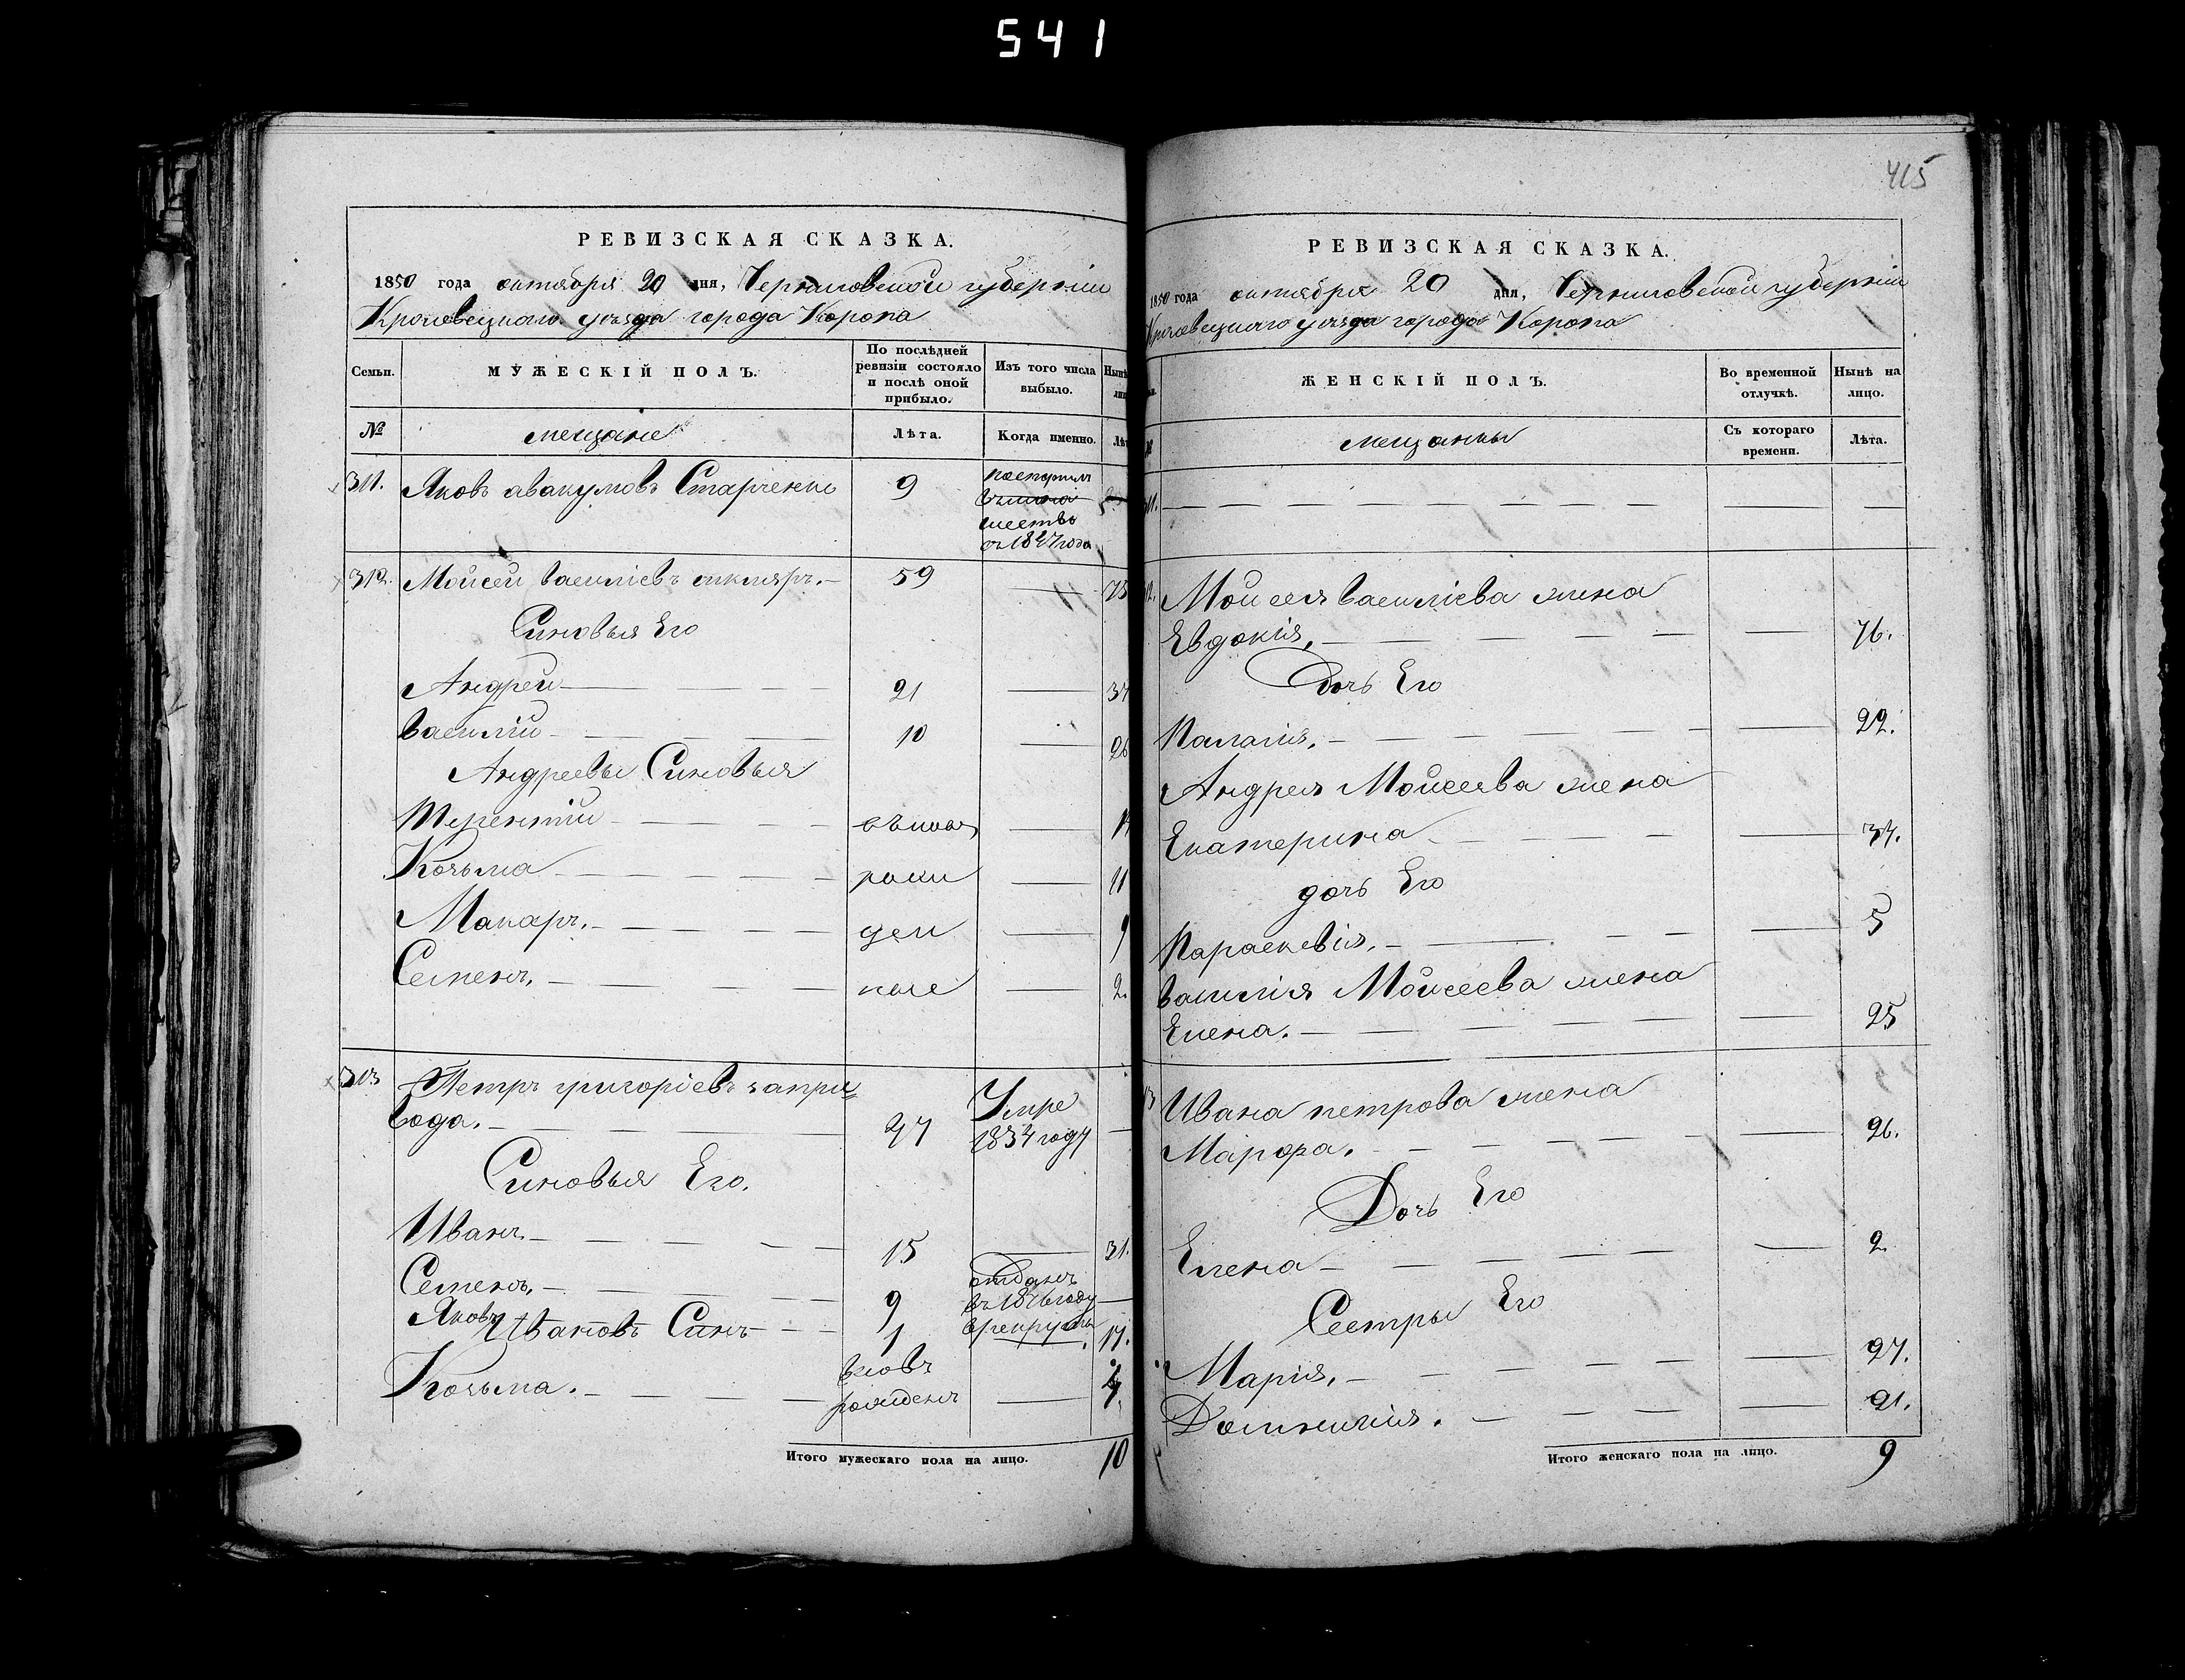 541
415
РЕВИЗСКАЯ СКАЗКА.
1850 года октября 20 дня, Черниговской губерніи
Кролевецкаго уѣзда города Коропа
Семьи.
МУЖЕСКІЙ ПОЛЪ.
По послѣдней ревизіи состояло и послѣ оной прибыло.
Изъ того числа выбыло.
Нынѣ
№
мещане
Лѣта.
Когда именно.
Лѣт
311. Яковъ авакумовъ Старченко 9
поступил
шество
съ 1847 года
312. Моисей василіевъ скляръ. 59 75
Синовья Его
Андрей 21 37
василій 10 26
Андреевы Синовья
Терентій вьновь
Козьма рожи 11
Макаръ. ден 9
Семенъ. ные 2.
313 Петръ григоріевъ запри
вода. 47 Умре 1834 году
Синовья Его.
Иванъ. 15 31.
Семенъ. 9 отданъ въ 1846 году в рекруты
Яковъ Ивановъ Синъ 1 17.
Козьма. вновь рожденъ
Итого мужескаго пола на лицо. 10
РЕВИЗСКАЯ СКАЗКА.
1850 года октября 20 дня, Черниговской губерніи
Кролевецкаго уѣзда города Коропа
ЖЕНСКІЙ ПОЛЪ.
Во временной отлучкѣ.
Нынѣ на лицо.
мещанки
Съ котораго времени.
Лѣта.
311.
12. Моисея василіева жена
Евдокія, 76.
Дочь Его
Палагія. 22.
Андрея Моисеева жена
Екатерина 34.
дочь Его
Параскевія. 5
василія Моисеева жена
Елена. 25
13 Ивана петрова жена
Марфа. 26.
Дочь Его
Елена 2
Сестры Его
Марія. 27.
Домникія. 21.
Итого женскаго пола на лицо. 9